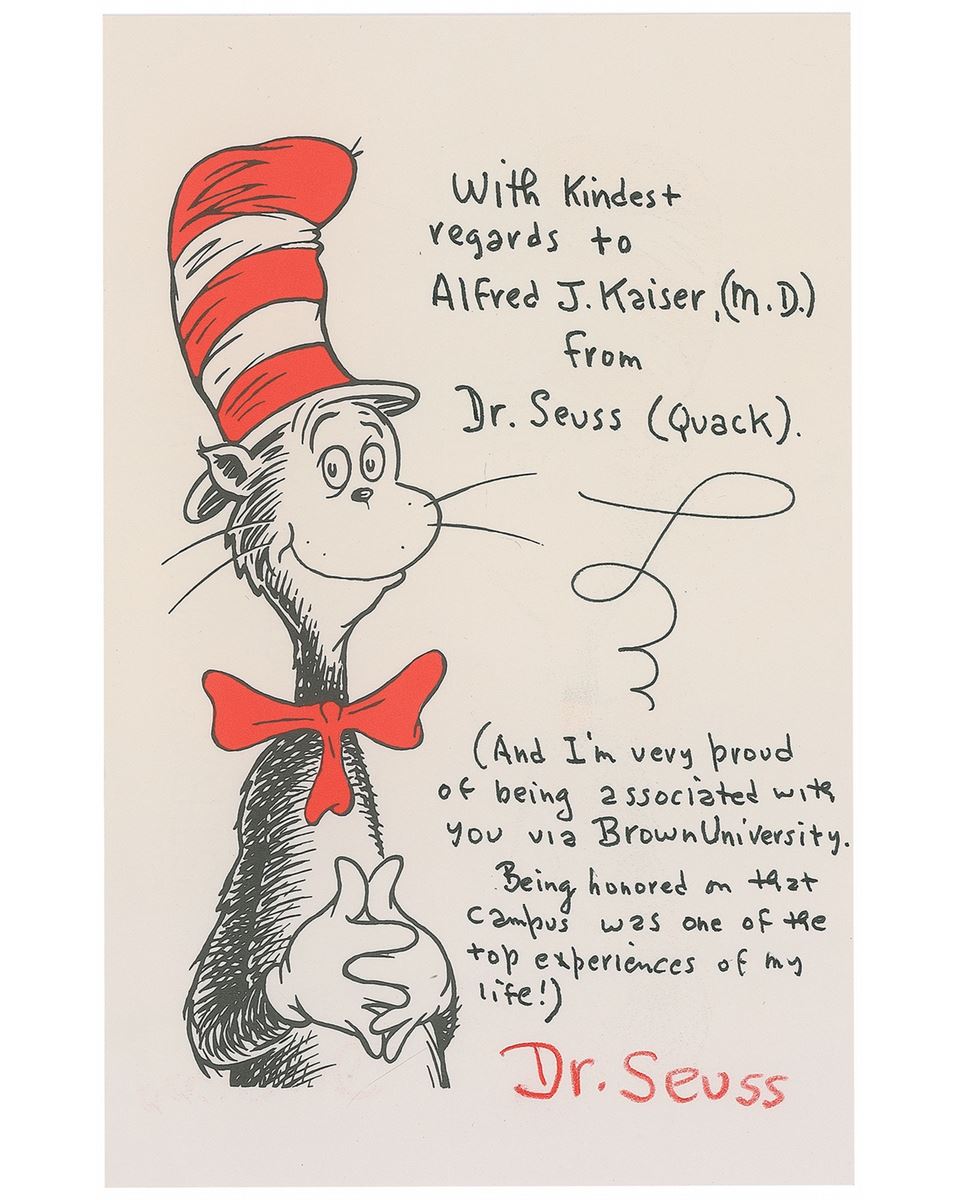 With Kindest
regards to
Alfred J. Kaiser, (M.D.)
from
Dr. Seuss (Quack).
(And I'm very proud
of being associated with
you via Brown University.
Being honored on that
campus was one of the
top experiences of my
life!)
Dr. Seuss